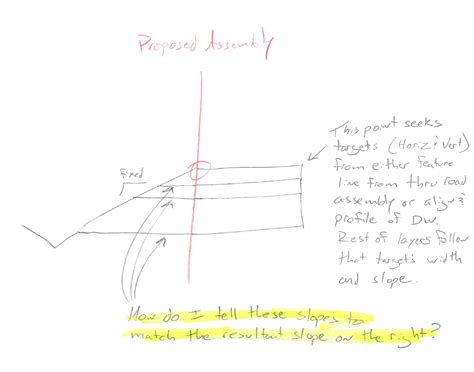 Proposed Assembly
fixed
This point seeks
targets (Horiz & Vert)
from either feature
line from thru road
assembly or align &
profile of DW.
Rest of layers follow
that targets width
and slope.
How do I tell these slopes to
match the resultant slope on the right?